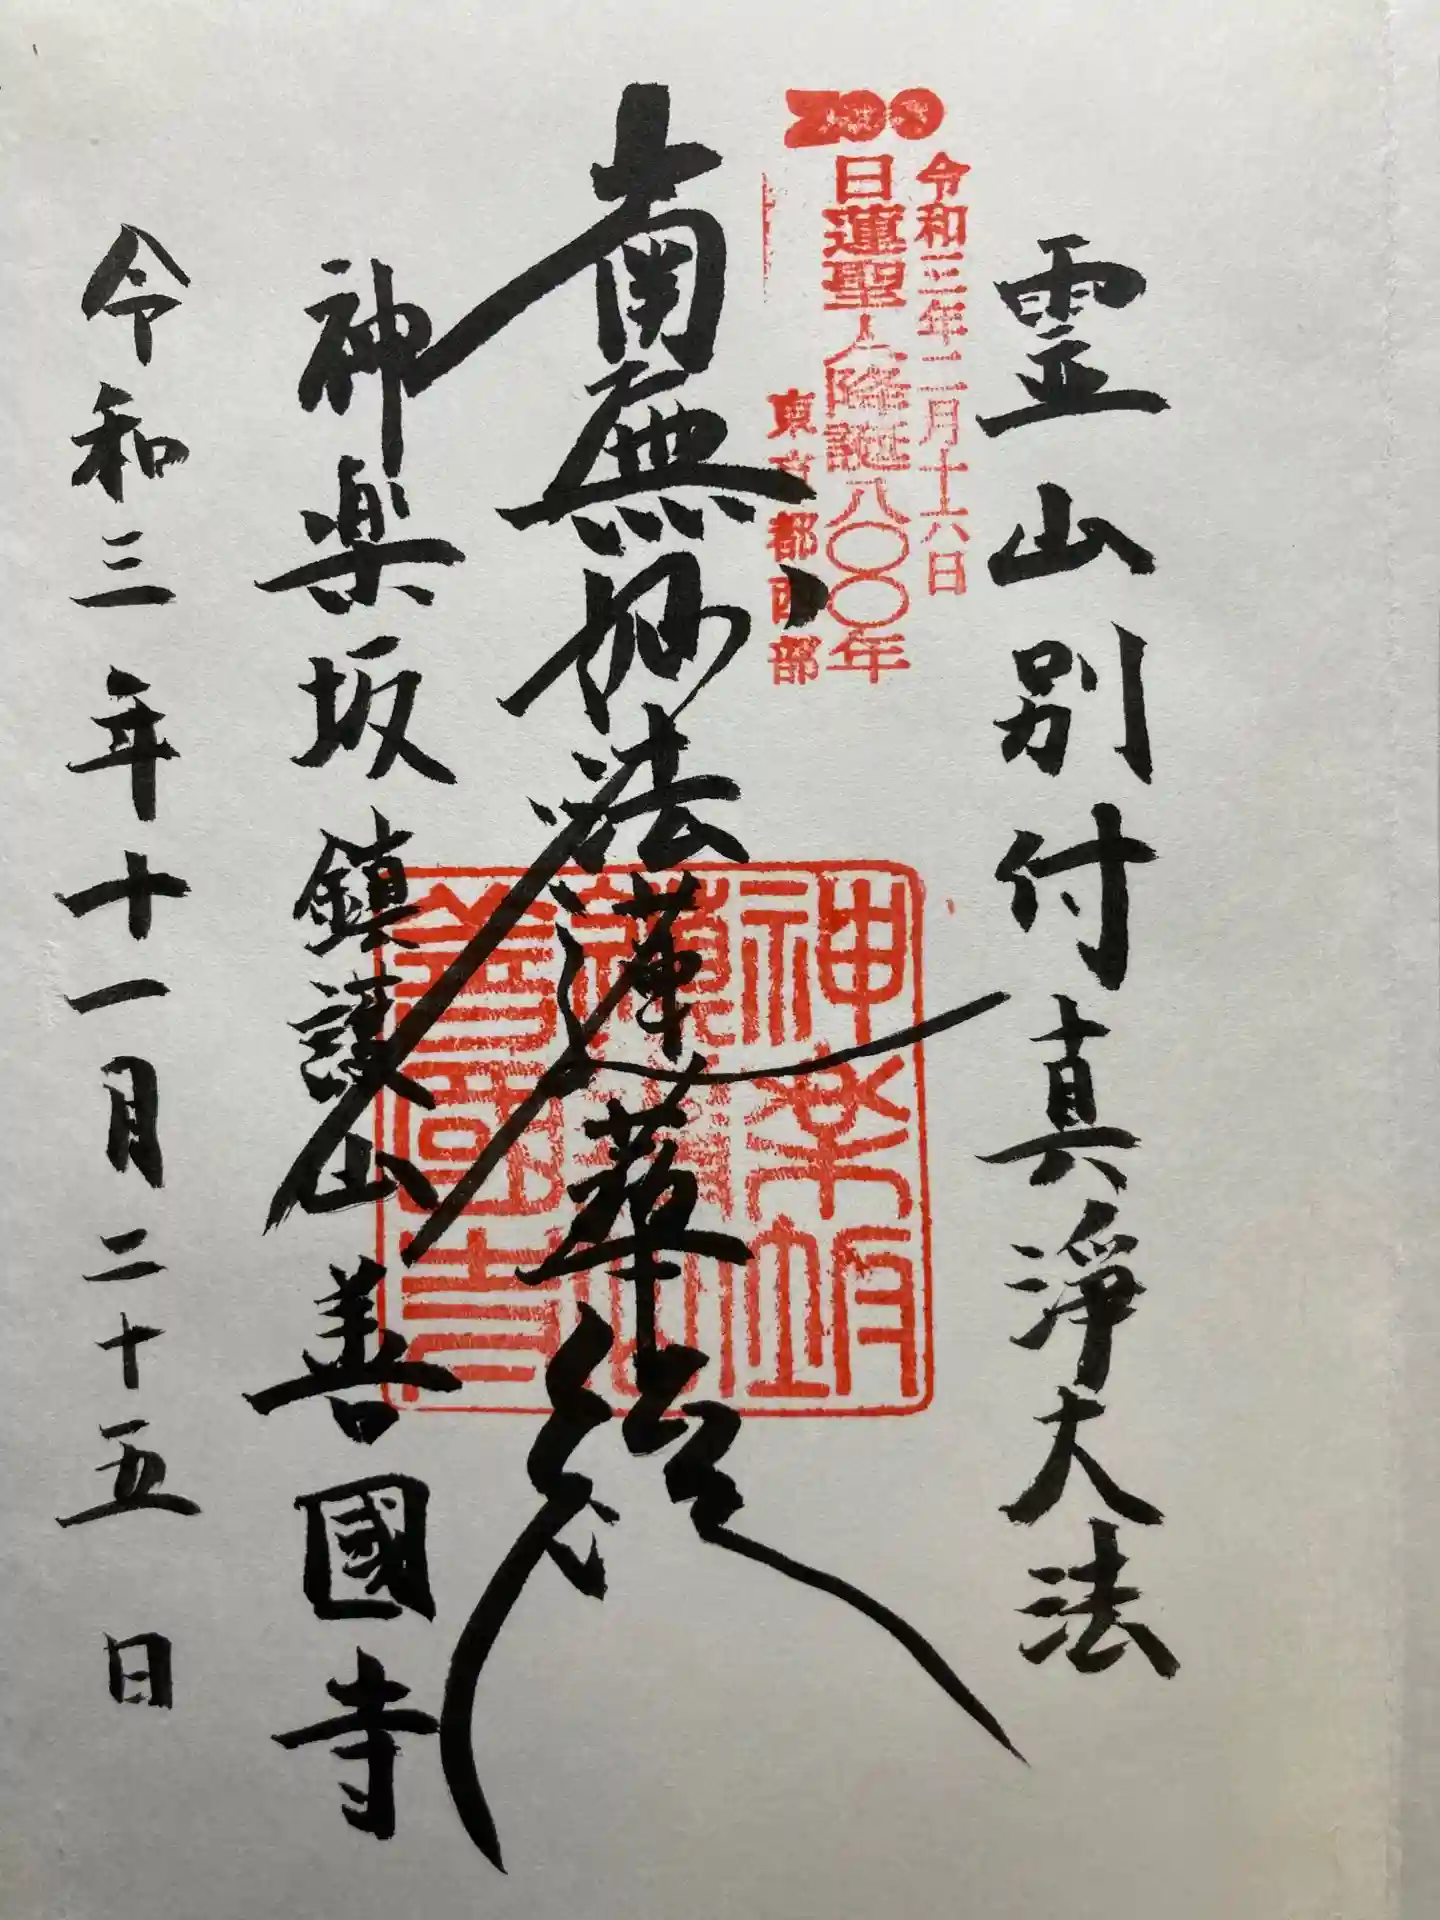 霊山別付真淨大法
令和三年二月十六日
日蓮聖人降誕八〇〇年
東京都西部
南無妙法蓮華経
神楽坂
善國寺
神楽坂鎮護山善國寺
令和三年十一月二十五日